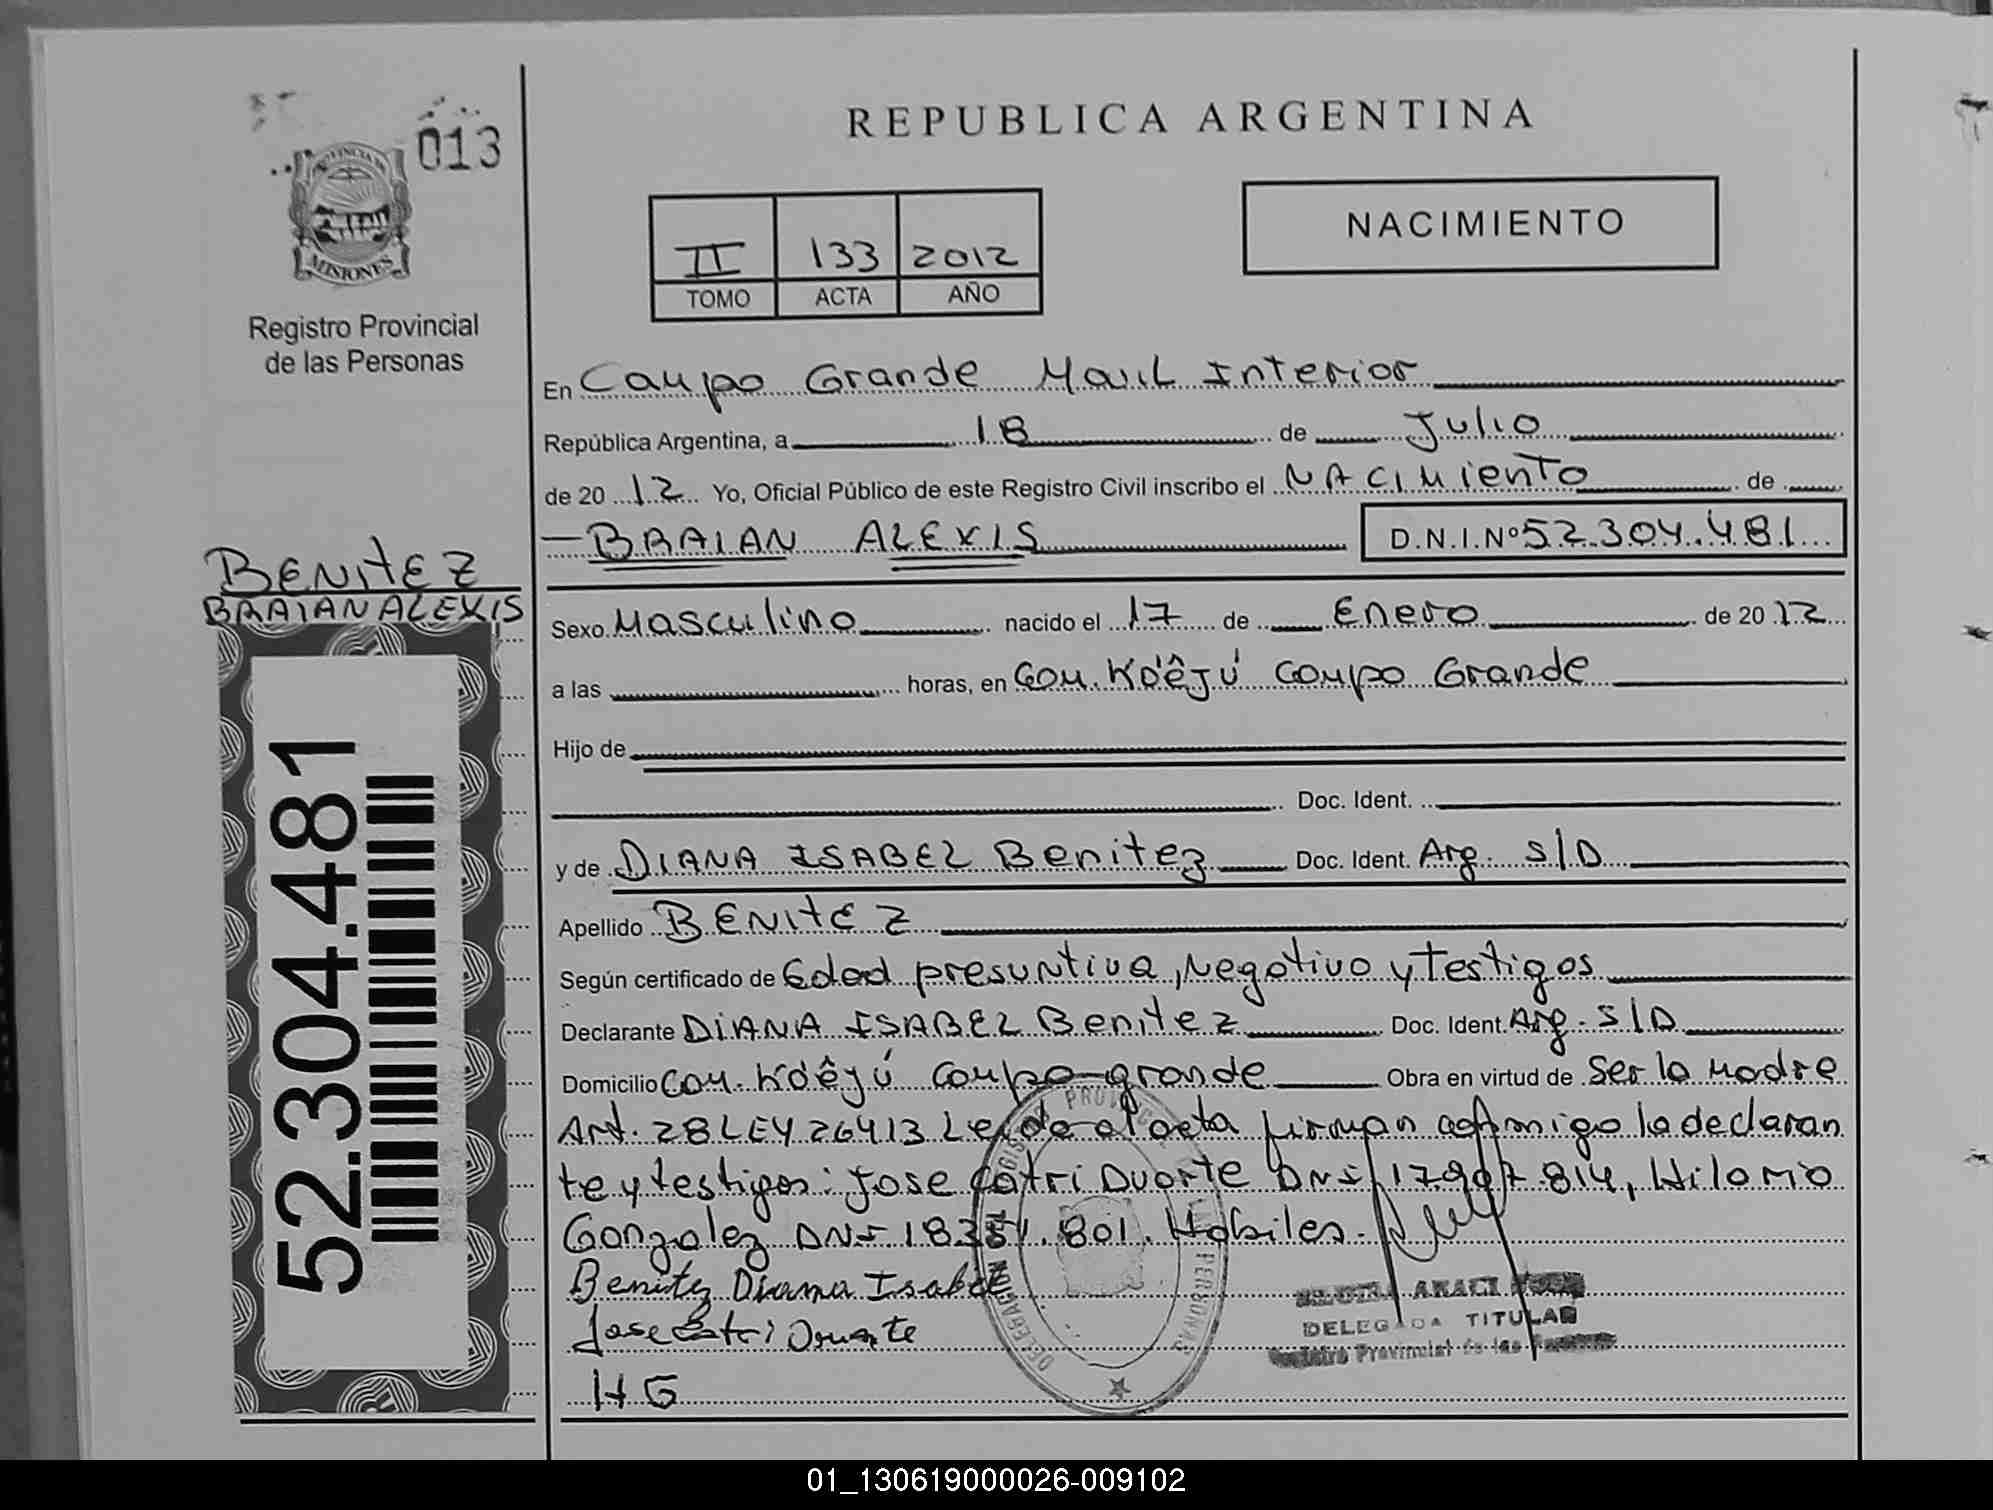 013
PROVINCIA DE
MISIONES
Registro Provincial
de las Personas
BENITEZ
BRAIAN ALEXIS
52.304.481
REPUBLICA ARGENTINA
II 133 2012
TOMO ACTA AÑO
NACIMIENTO
En Campo Grande Movil Interior
República Argentina, a 18 de Julio
de 2012 Yo, Oficial Público de este Registro Civil inscribo el NACIMIENTO de
BRAIAN ALEXIS D.N.I.Nº 52.304.481
Sexo Masculino nacido el 17 de Enero de 2012
a las horas, en Com. Ko'êJú Campo Grande
Hijo de
Doc. Ident.
y de DIANA ISABEL Benitez Doc. Ident. Arg. S/D
Apellido BENITEZ
Según certificado de Edad presuntiva, Negativo y Testigos
Declarante DIANA ISABEL Benitez Doc. Ident. Arg. S/D
Domicilio Com. Ko'êJú Campo grande Obra en virtud de Ser la Madre
Art. 28 LEY 26413 Leida el acta firman conmigo la declaran
te y testigos: Jose Catri Duarte DNI 17.907.814, Hilario
Gonzalez DNI 18.351.801. Habiles.
Benitez Diana Isabel
Jose Catri Duarte
HG
DELEGADA TITULAR
Registro Provincial de las Personas
01_130619000026-009102